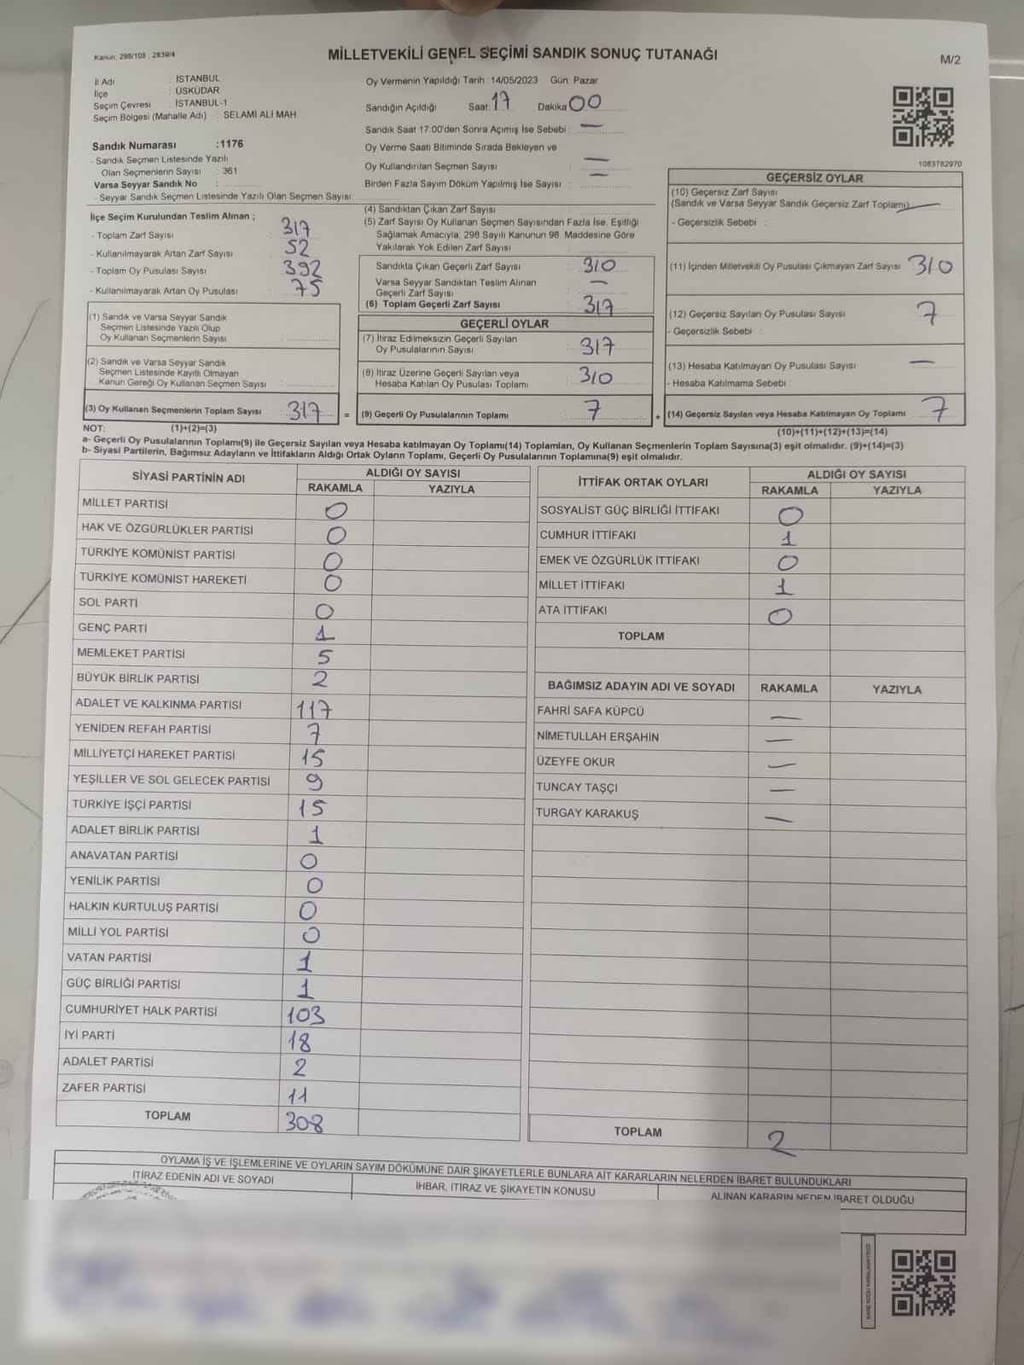 Kanun: 298/105 , 2839/4
MİLLETVEKİLİ GENEL SEÇİMİ SANDIK SONUÇ TUTANAĞI
M/2
İl Adı : İSTANBUL
İlçe : ÜSKÜDAR
Seçim Çevresi : İSTANBUL-1
Seçim Bölgesi (Mahalle Adı) : SELAMİ ALİ MAH
Oy Vermenin Yapıldığı Tarih : 14/05/2023 Gün: Pazar
Sandığın Açıldığı Saat: 17 Dakika 00
Sandık Saat 17:00'den Sonra Açımış İse Sebebi : —
Oy Verme Saati Bitiminde Sırada Bekleyen ve
Oy Kullandırılan Seçmen Sayısı : —
Birden Fazla Sayım Döküm Yapılmış İse Sayısı : —
Sandık Numarası :1176
- Sandık Seçmen Listesinde Yazılı
Olan Seçmenlerin Sayısı : 361
Varsa Seyyar Sandık No :
- Seyyar Sandık Seçmen Listesinde Yazılı Olan Seçmen Sayısı:
1083782970
İlçe Seçim Kurulundan Teslim Alınan ;
- Toplam Zarf Sayısı : 317
- Kullanılmayarak Artan Zarf Sayısı : 52
- Toplam Oy Pusulası Sayısı : 392
- Kullanılmayarak Artan Oy Pusulası : 75
(1) Sandık ve Varsa Seyyar Sandık
Seçmen Listesinde Yazılı Olup
Oy Kullanan Seçmenlerin Sayısı :
(2) Sandık ve Varsa Seyyar Sandık
Seçmen Listesinde Kayıtlı Olmayan
Kanun Gereği Oy Kullanan Seçmen Sayısı :
(3) Oy Kullanan Seçmenlerin Toplam Sayısı : 317 =
(1)+(2)=(3)
(4) Sandıktan Çıkan Zarf Sayısı :
(5) Zarf Sayısı Oy Kullanan Seçmen Sayısından Fazla İse, Eşitliği
Sağlamak Amacıyla, 298 Sayılı Kanunun 98. Maddesine Göre
Yakılarak Yok Edilen Zarf Sayısı :
Sandıkta Çıkan Geçerli Zarf Sayısı : 310
Varsa Seyyar Sandıktan Teslim Alınan
Geçerli Zarf Sayısı : —
(6) Toplam Geçerli Zarf Sayısı : 317
GEÇERLİ OYLAR
(7) İtiraz Edilmeksizin Geçerli Sayılan
Oy Pusulalarının Sayısı : 317
(8) İtiraz Üzerine Geçerli Sayılan veya
Hesaba Katılan Oy Pusulası Toplamı : 310
(9) Geçerli Oy Pusulalarının Toplamı : 7 +
GEÇERSİZ OYLAR
(10) Geçersiz Zarf Sayısı
(Sandık ve Varsa Seyyar Sandık Geçersiz Zarf Toplamı) —
- Geçersizlik Sebebi :
(11) İçinden Milletvekili Oy Pusulası Çıkmayan Zarf Sayısı : 310
(12) Geçersiz Sayılan Oy Pusulası Sayısı : 7
- Geçersizlik Sebebi :
(13) Hesaba Katılmayan Oy Pusulası Sayısı : —
- Hesaba Katılmama Sebebi :
(14) Geçersiz Sayılan veya Hesaba Katılmayan Oy Toplamı : 7
(10)+(11)+(12)+(13)=(14)
NOT:
a- Geçerli Oy Pusulalarının Toplamı(9) ile Geçersiz Sayılan veya Hesaba katılmayan Oy Toplamı(14) Toplamları, Oy Kullanan Seçmenlerin Toplam Sayısına(3) eşit olmalıdır. (9)+(14)=(3)
b- Siyasi Partilerin, Bağımsız Adayların ve İttifakların Aldığı Ortak Oyların Toplamı, Geçerli Oy Pusulalarının Toplamına(9) eşit olmalıdır.
SİYASİ PARTİNİN ADI ALDIĞI OY SAYISI
RAKAMLA YAZIYLA
MİLLET PARTİSİ 0
HAK VE ÖZGÜRLÜKLER PARTİSİ 0
TÜRKİYE KOMÜNİST PARTİSİ 0
TÜRKİYE KOMÜNİST HAREKETİ 0
SOL PARTİ 0
GENÇ PARTİ 1
MEMLEKET PARTİSİ 5
BÜYÜK BİRLİK PARTİSİ 2
ADALET VE KALKINMA PARTİSİ 117
YENİDEN REFAH PARTİSİ 7
MİLLİYETÇİ HAREKET PARTİSİ 15
YEŞİLLER VE SOL GELECEK PARTİSİ 9
TÜRKİYE İŞÇİ PARTİSİ 15
ADALET BİRLİK PARTİSİ 1
ANAVATAN PARTİSİ 0
YENİLİK PARTİSİ 0
HALKIN KURTULUŞ PARTİSİ 0
MİLLİ YOL PARTİSİ 0
VATAN PARTİSİ 1
GÜÇ BİRLİĞİ PARTİSİ 1
CUMHURİYET HALK PARTİSİ 103
İYİ PARTİ 18
ADALET PARTİSİ 2
ZAFER PARTİSİ 11
TOPLAM 308
İTTİFAK ORTAK OYLARI ALDIĞI OY SAYISI
RAKAMLA YAZIYLA
SOSYALİST GÜÇ BİRLİĞİ İTTİFAKI 0
CUMHUR İTTİFAKI 1
EMEK VE ÖZGÜRLÜK İTTİFAKI 0
MİLLET İTTİFAKI 1
ATA İTTİFAKI 0
TOPLAM
BAĞIMSIZ ADAYIN ADI VE SOYADI RAKAMLA YAZIYLA
FAHRİ SAFA KÜPCÜ —
NİMETULLAH ERŞAHİN —
ÜZEYFE OKUR —
TUNCAY TAŞÇI —
TURGAY KARAKUŞ —
TOPLAM 2
OYLAMA İŞ VE İŞLEMLERİNE VE OYLARIN SAYIM DÖKÜMÜNE DAİR ŞİKAYETLERLE BUNLARA AİT KARARLARIN NELERDEN İBARET BULUNDUKLARI
İTİRAZ EDENİN ADI VE SOYADI İHBAR, İTİRAZ VE ŞİKAYETİN KONUSU ALINAN KARARIN NEDEN İBARET OLDUĞU